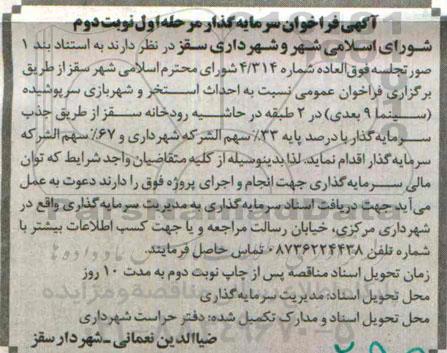 آگهی فراخوان سرمایه گذار مرحله اول نوبت دوم
شورای اسلامی شهر و شهرداری سقز در نظر دارند به استناد بند ۱
صورتجلسه فوق العاده شماره ۴/۳۱۴ شورای محترم اسلامی شهر سقز از طریق
برگزاری فراخوان عمومی نسبت به احداث استخر و شهربازی سرپوشیده
(سینما ۹ بعدی) در ۲ طبقه در حاشیه رودخانه سقز از طریق جذب
سرمایه گذار با درصد پایه ۳۳٪ سهم الشرکه شهرداری و ۶۷٪ سهم الشرکه
سرمایه گذار اقدام نماید. لذا بدینوسیله از کلیه متقاضیان واجد شرایط که توان
مالی سرمایه گذاری جهت انجام و اجرای پروژه فوق را دارند دعوت به عمل
می آید جهت دریافت اسناد سرمایه گذاری به مدیریت سرمایه گذاری واقع در
شهرداری مرکزی، خیابان رسالت مراجعه و یا جهت کسب اطلاعات بیشتر با
شماره تلفن ۰۸۷۳۶۲۲۴۴۳۸ تماس حاصل فرمایند.
زمان تحویل اسناد مناقصه پس از چاپ نوبت دوم به مدت ۱۰ روز
محل تحویل اسناد: مدیریت سرمایه گذاری
محل تحویل اسناد و مدارک تکمیل شده: دفتر حراست شهرداری
ضیاالدین نعمانی ـ شهردار سقز